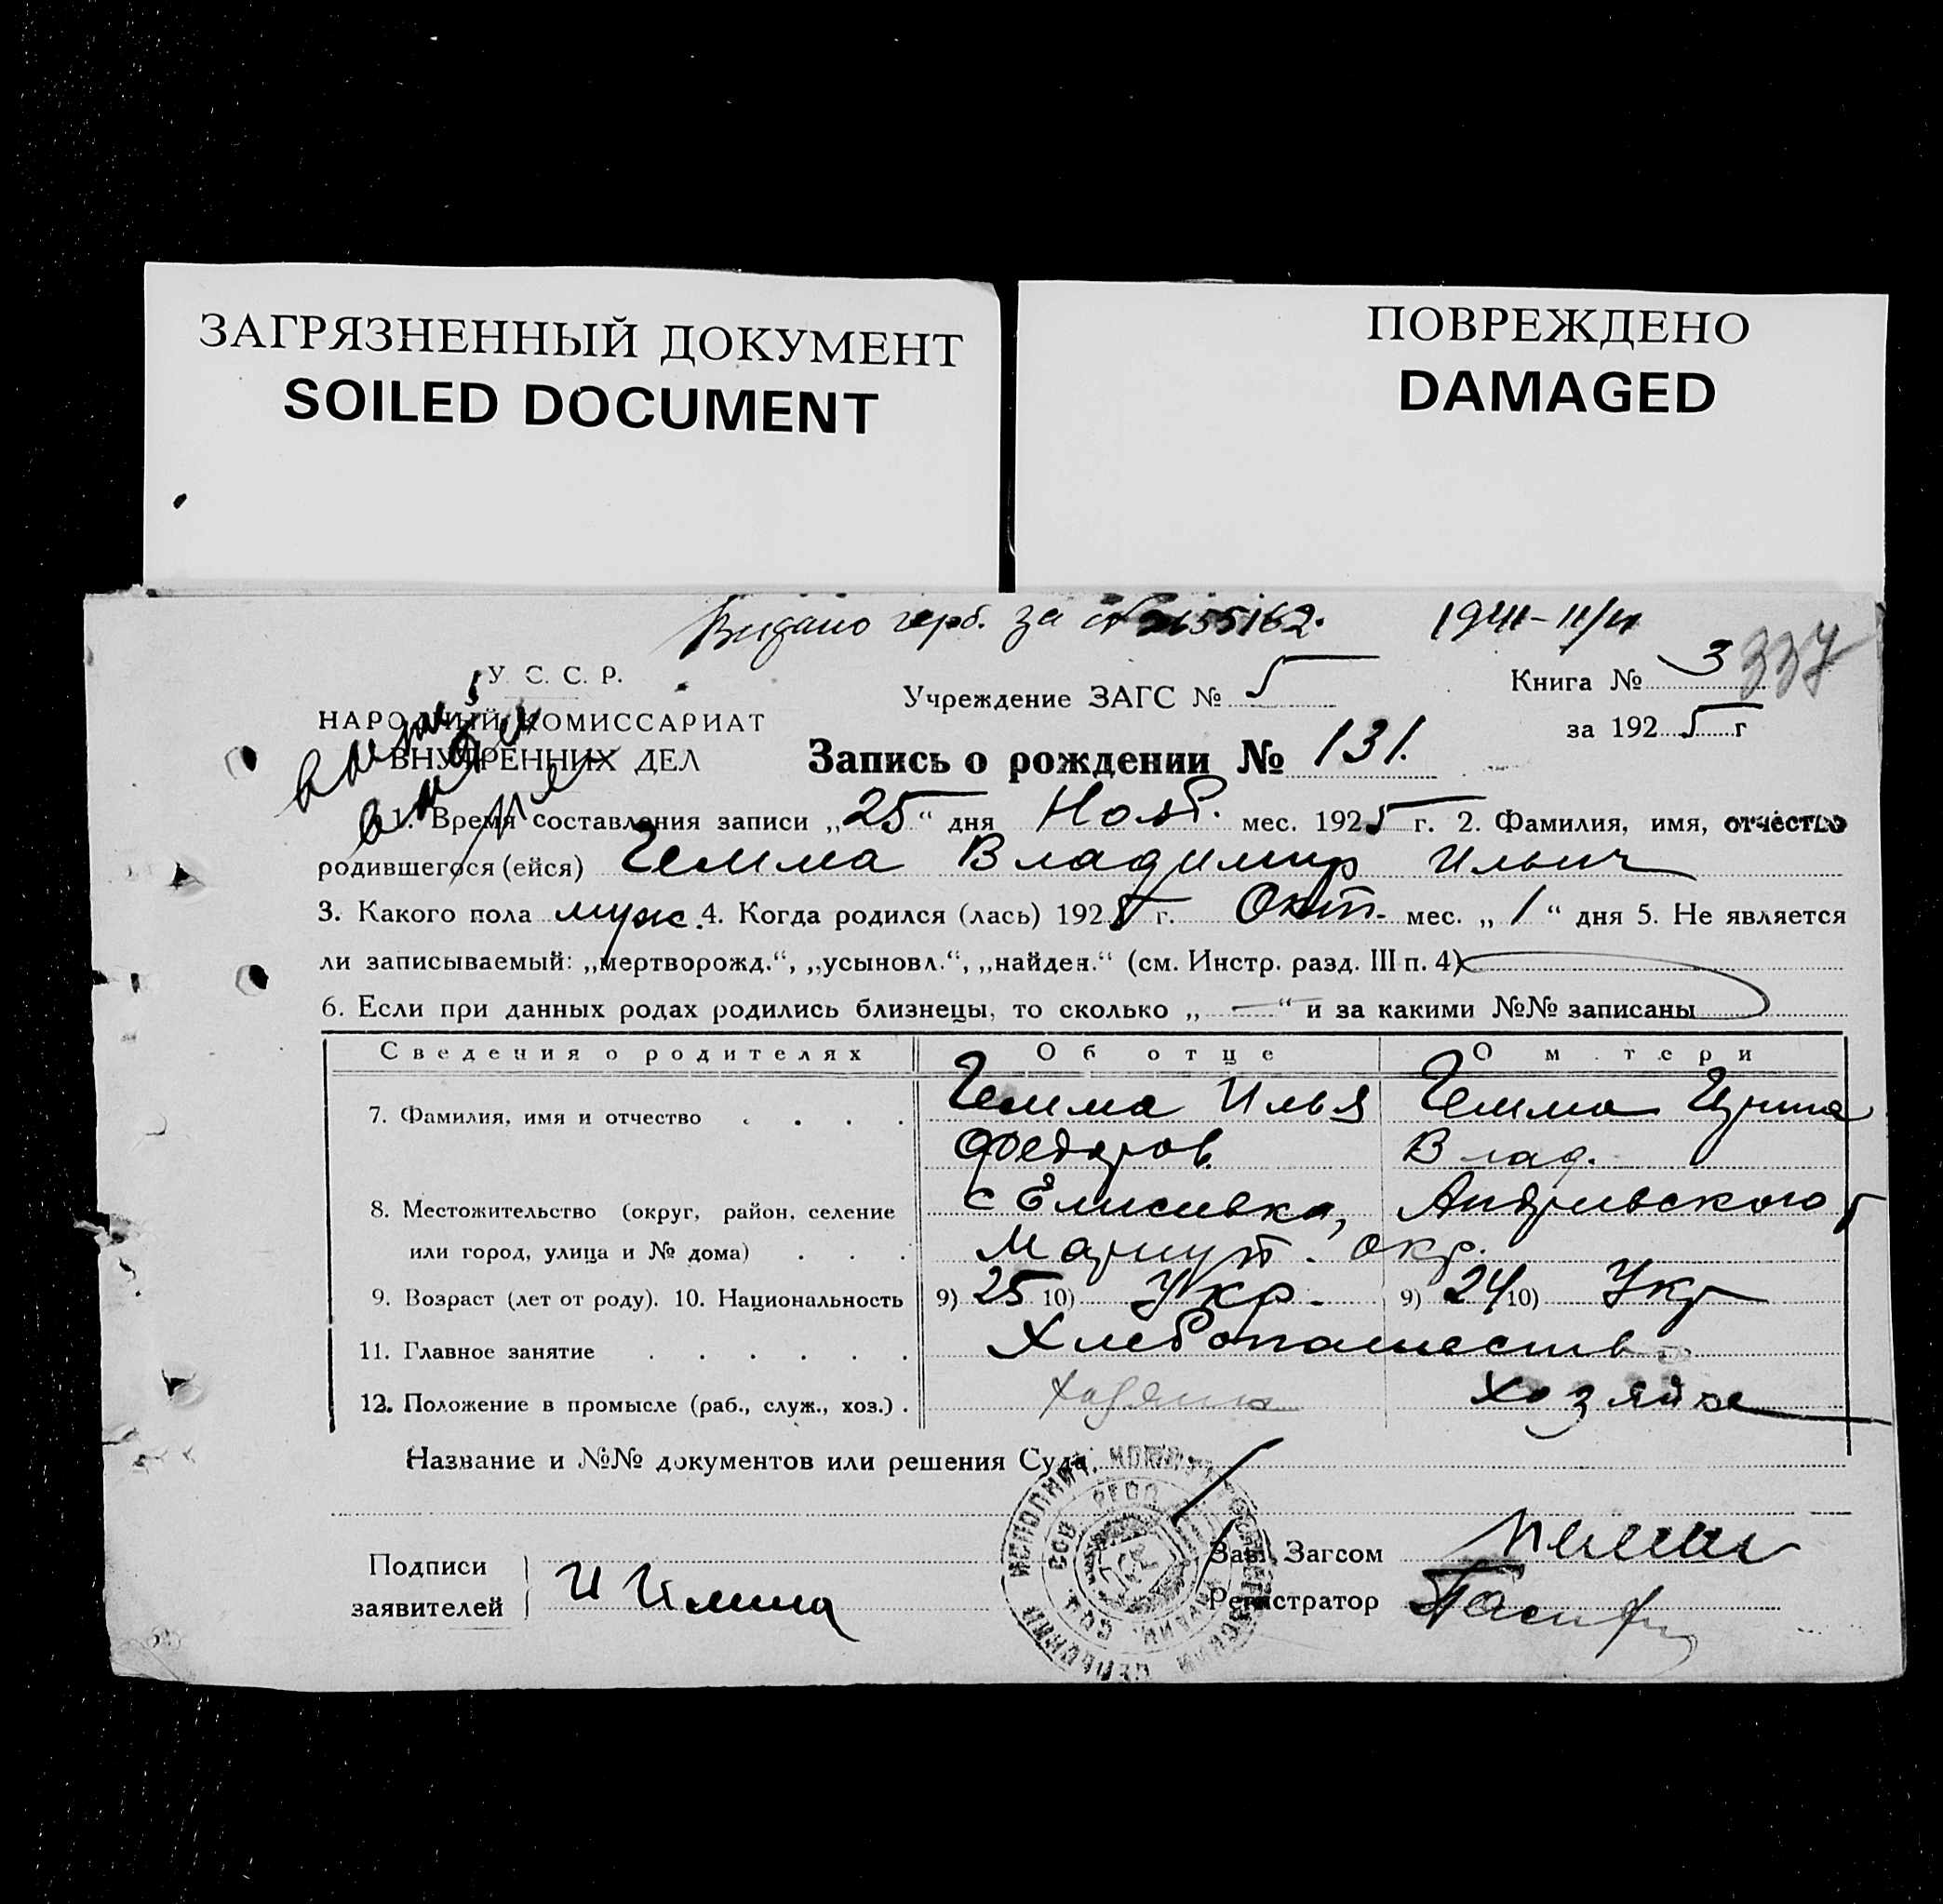 ЗАГРЯЗНЕННЫЙ ДОКУМЕНТ
SOILED DOCUMENT
ПОВРЕЖДЕНО
DAMAGED
Видано герб. за № 2655162. 1941-11/VI
У. С. С. Р.
НАРОДНЫЙ КОМИССАРИАТ
ВНУТРЕННИХ ДЕЛ
Учреждение ЗАГС № 5
Книга № 3 337
за 1925 г
Запись о рождении № 131.
1. Время составления записи „25“ дня Нояб. мес. 1925 г. 2. Фамилия, имя, отчество
родившегося (ейся) Гемма Владимир Ильич
3. Какого пола муж. 4. Когда родился (лась) 1925 г. Окт. мес. „1“ дня 5. Не является
ли записываемый: „мертворожд.“, „усыновл.“, „найден.“ (см. Инстр. разд. III п. 4)
6. Если при данных родах родились близнецы, то сколько „—“ и за какими №№ записаны
Сведения о родителях Об отце О м тери
7. Фамилия, имя и отчество . . . . Гемма Илья Гемма
Федоров. Влад.
8. Местожительство (округ, район, селение с Елисеевка, Андреевского
или город, улица и № дома) . . . Мариуп. окр.
9. Возраст (лет от роду). 10. Национальность 9) 25 10) Укр. 9) 24 10) Укр
11. Главное занятие . . . . . . Хлебопашество
12. Положение в промысле (раб., служ., хоз.) . хозяин хозяйка
Название и №№ документов или решения Суда.
Подписи
заявителей
Зав. Загсом
Регистратор